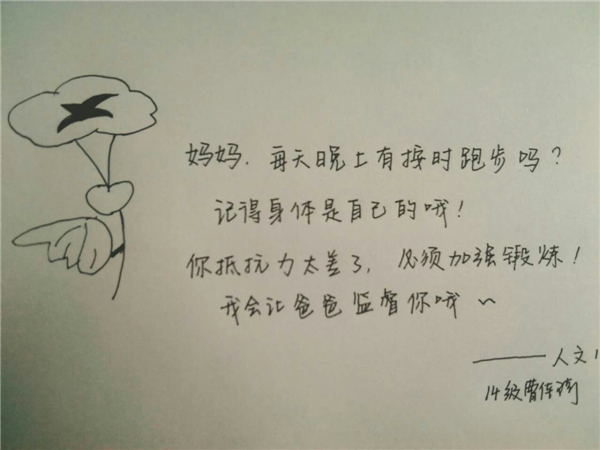 妈妈，每天晚上有按时跑步吗？
记得身体是自己的哦！
你抵抗力太差了，必须加强锻炼！
我会让爸爸监督你哦~
——人文1
14级曹佳